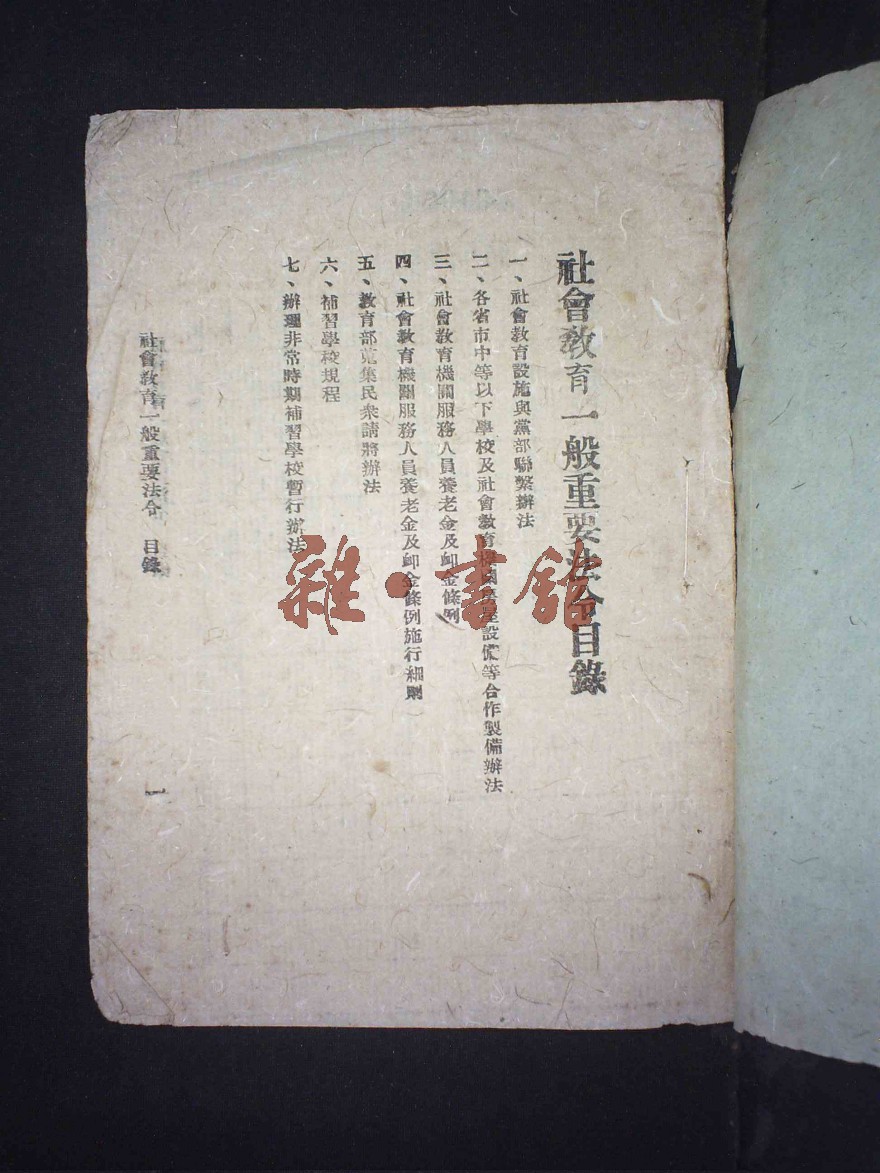 社會教育一般重要法令目錄
一、社會教育設施與黨部聯繫辦法
二、各省市中等以下學校及社會教育機關房屋設備等合作製備辦法
三、社會教育機關服務人員養老金及卹金條例
四、社會教育機關服務人員養老金及卹金條例施行細則
五、教育部蒐集民衆請將辦法
六、補習學校規程
七、辦理非常時期補習學校暫行辦法
社會教育一般重要法令 目錄
一
雜·書館